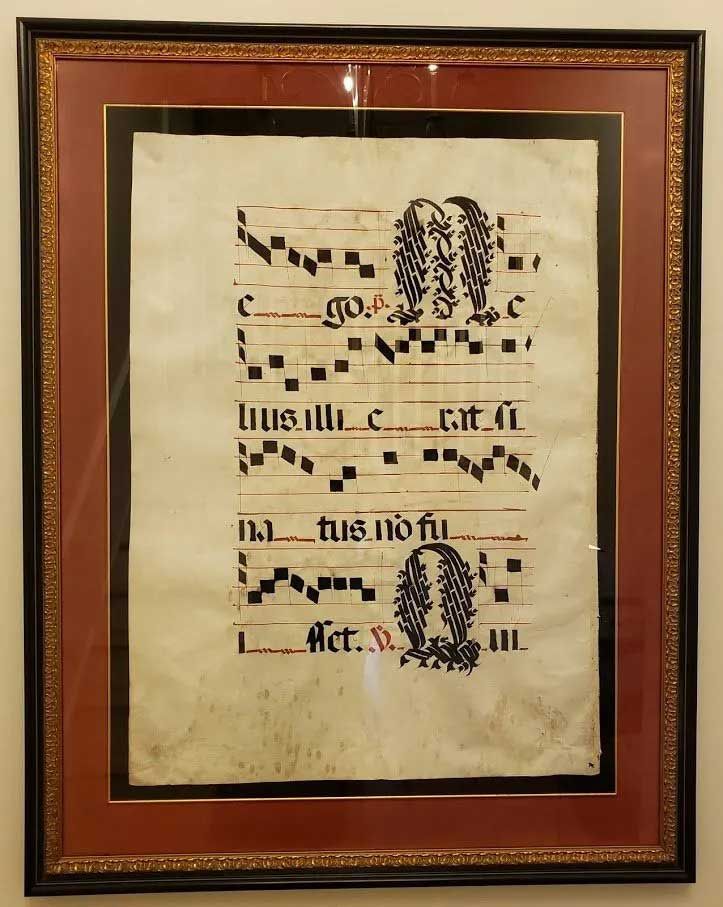 e go. p̄. M e
lius illi e rat si
na tus nō fu
i sset. ℣. Q ui